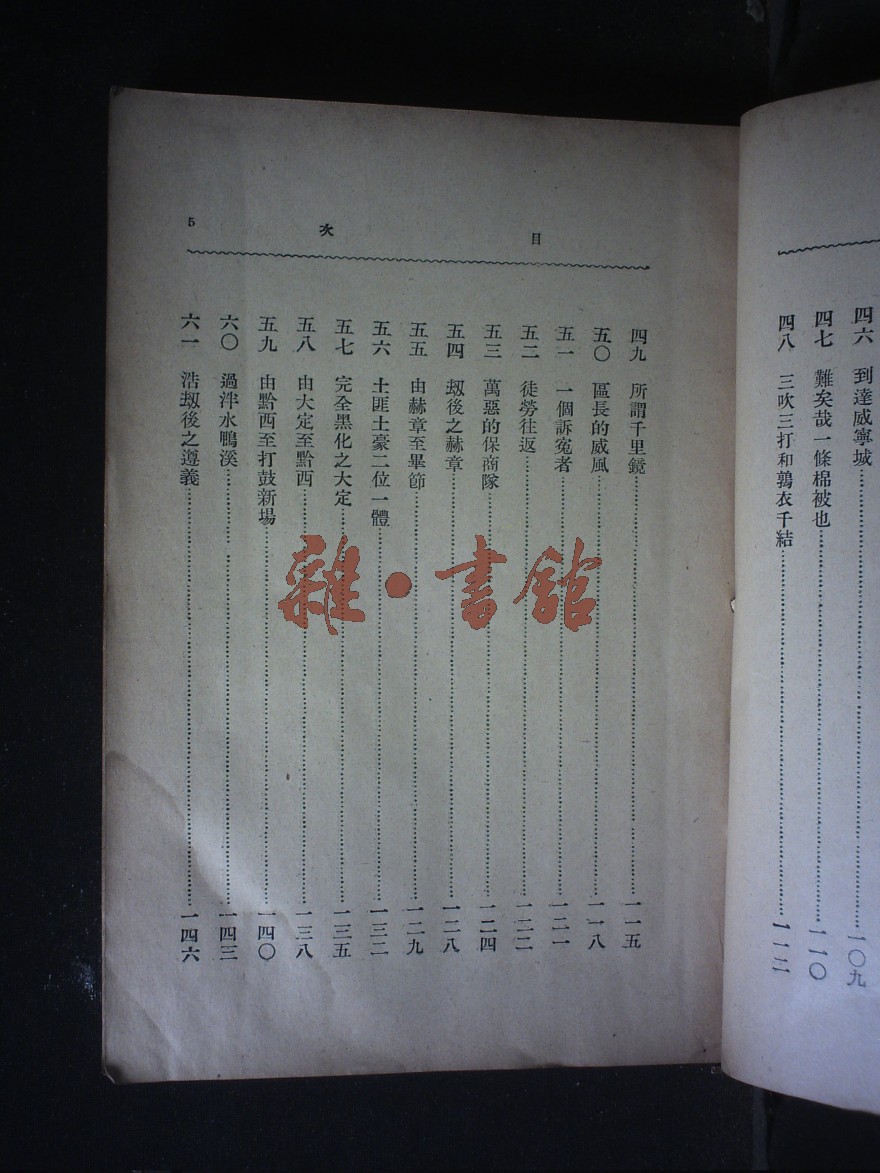 四六 到達威寧城……一〇九
四七 難矣哉一條棉被也……一一〇
四八 三吹三打和鶉衣千結……一一二
目 次 5
四九 所謂千里鏡……一一五
五〇 區長的威風……一一八
五一 一個訴冤者……一二一
五二 徒勞往返……一二二
五三 萬惡的保商隊……一二四
五四 刼後之赫章……一二八
五五 由赫章至畢節……一二九
五六 土匪土豪二位一體……一三二
五七 完全黑化之大定……一三五
五八 由大定至黔西……一三八
五九 由黔西至打鼓新場……一四〇
六〇 過泮水鴨溪……一四三
六一 浩刼後之遵義……一四六
雜·書館